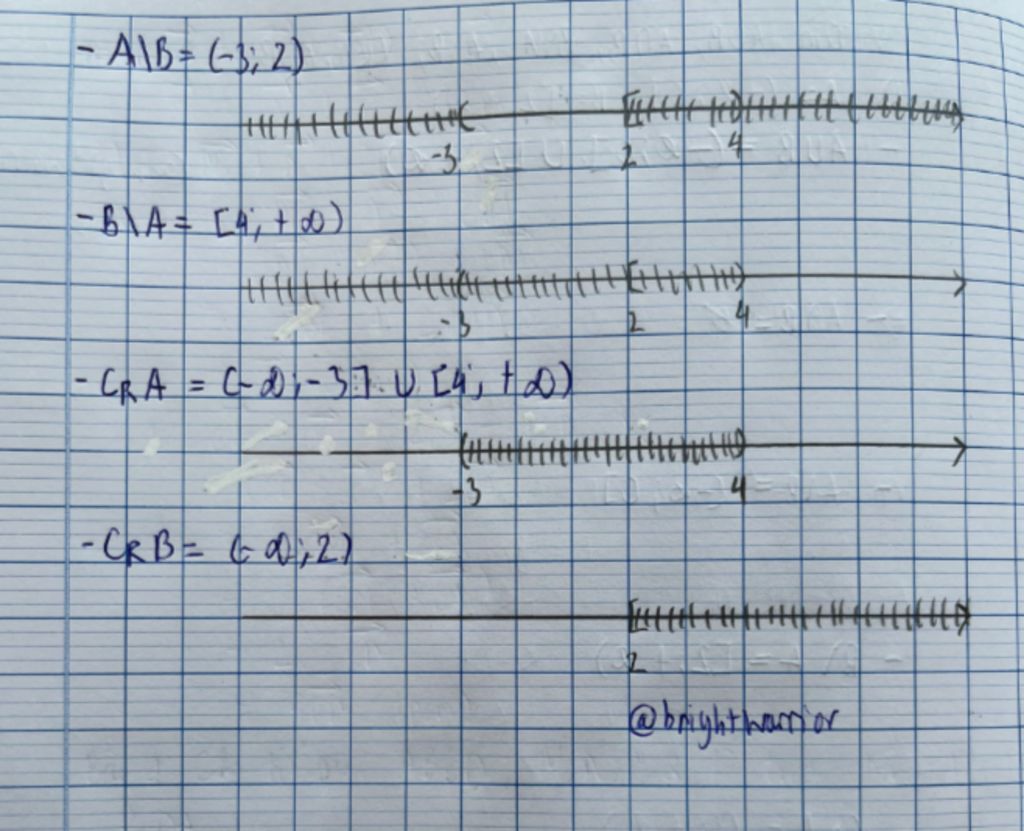 - A\B = (-3; 2)
-3 2 4
- B\A = [4; +∞)
-3 2 4
- CRA = (-∞; -3] ∪ [4; +∞)
-3 4
- CRB = (-∞; 2)
2
@brightwarrior